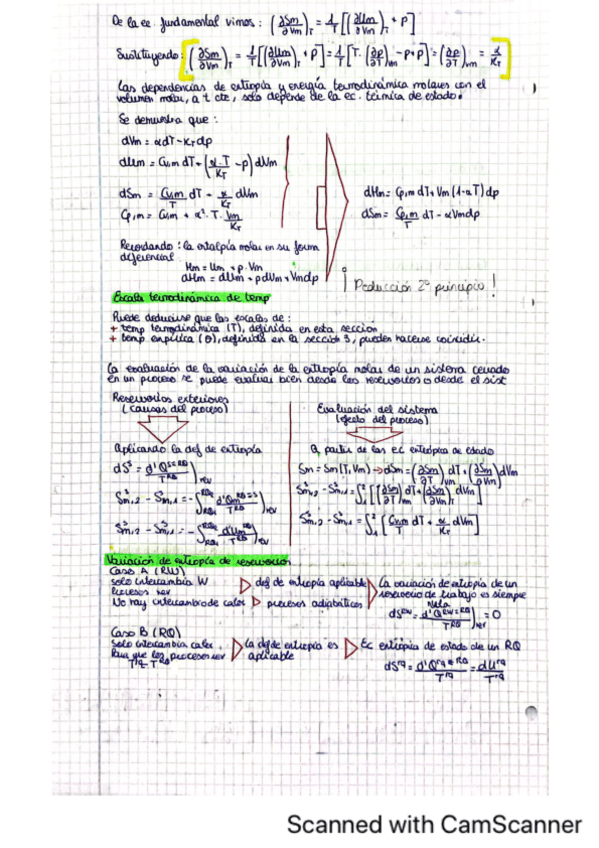 De la ec. fundamental vimos: (∂Sm/∂Vm)T = 1/T [(∂Um/∂Vm)T + p]
Sustituyendo: [(∂Sm/∂Vm)T = 1/T [(∂Um/∂Vm)T + p] = 1/T [T·(∂p/∂T)Vm - p + p] = (∂p/∂T)Vm = α/KT]
Las dependencias de entropía y energía termodinámica molares con el
volumen molar, a t cte, solo depende de la ec. térmica de estado.
Se demuestra que:
dVm = αdT - KTdp
dUm = Cv,m dT + (α·T/KT - p) dVm
dSm = Cv,m/T dT + α/KT dVm
Cp,m = Cv,m + α²·T·Vm/KT
dHm = Cp,m dT + Vm (1-αT) dp
dSm = Cp,m/T dT - αVmdp
Recordando: la entalpía molar en su forma
diferencial
Hm = Um + p·Vm
dHm = dUm + pdVm + Vmdp
¡ Deducción 2º principio !
Escala termodinámica de temp
Puede deducirse que las escalas de:
+ temp termodinámica (T), definida en esta sección
+ temp empírica (θ), definida en la sección 3, pueden hacerse coincidir.
La evaluación de la variación de la entropía molar de un sistema cerrado
en un proceso se puede evaluar bien desde los reservorios o desde el sist
Reservorios exteriores
(causas del proceso)
Aplicando la def de entropía
Evaluación del sistema
(efecto del proceso)
a partir de las ec entrópica de estado
Sm = Sm(T,Vm) → dSm = (∂Sm/∂T)Vm dT + (∂Sm/∂Vm)T dVm
Variación de entropía de reservorios
Caso A (RW)
solo intercambia W
Procesos rev
No hay intercambio de calor ▷ procesos adiabáticos
def de entropía aplicable
La variación de entropía de un
reservorio de trabajo es siempre
Nula
Caso B (RQ)
Solo intercambia calor.
Para que los procesos rev
La def de entropía es
aplicable
Ec entrópica de estado de un RQ
Scanned with CamScanner